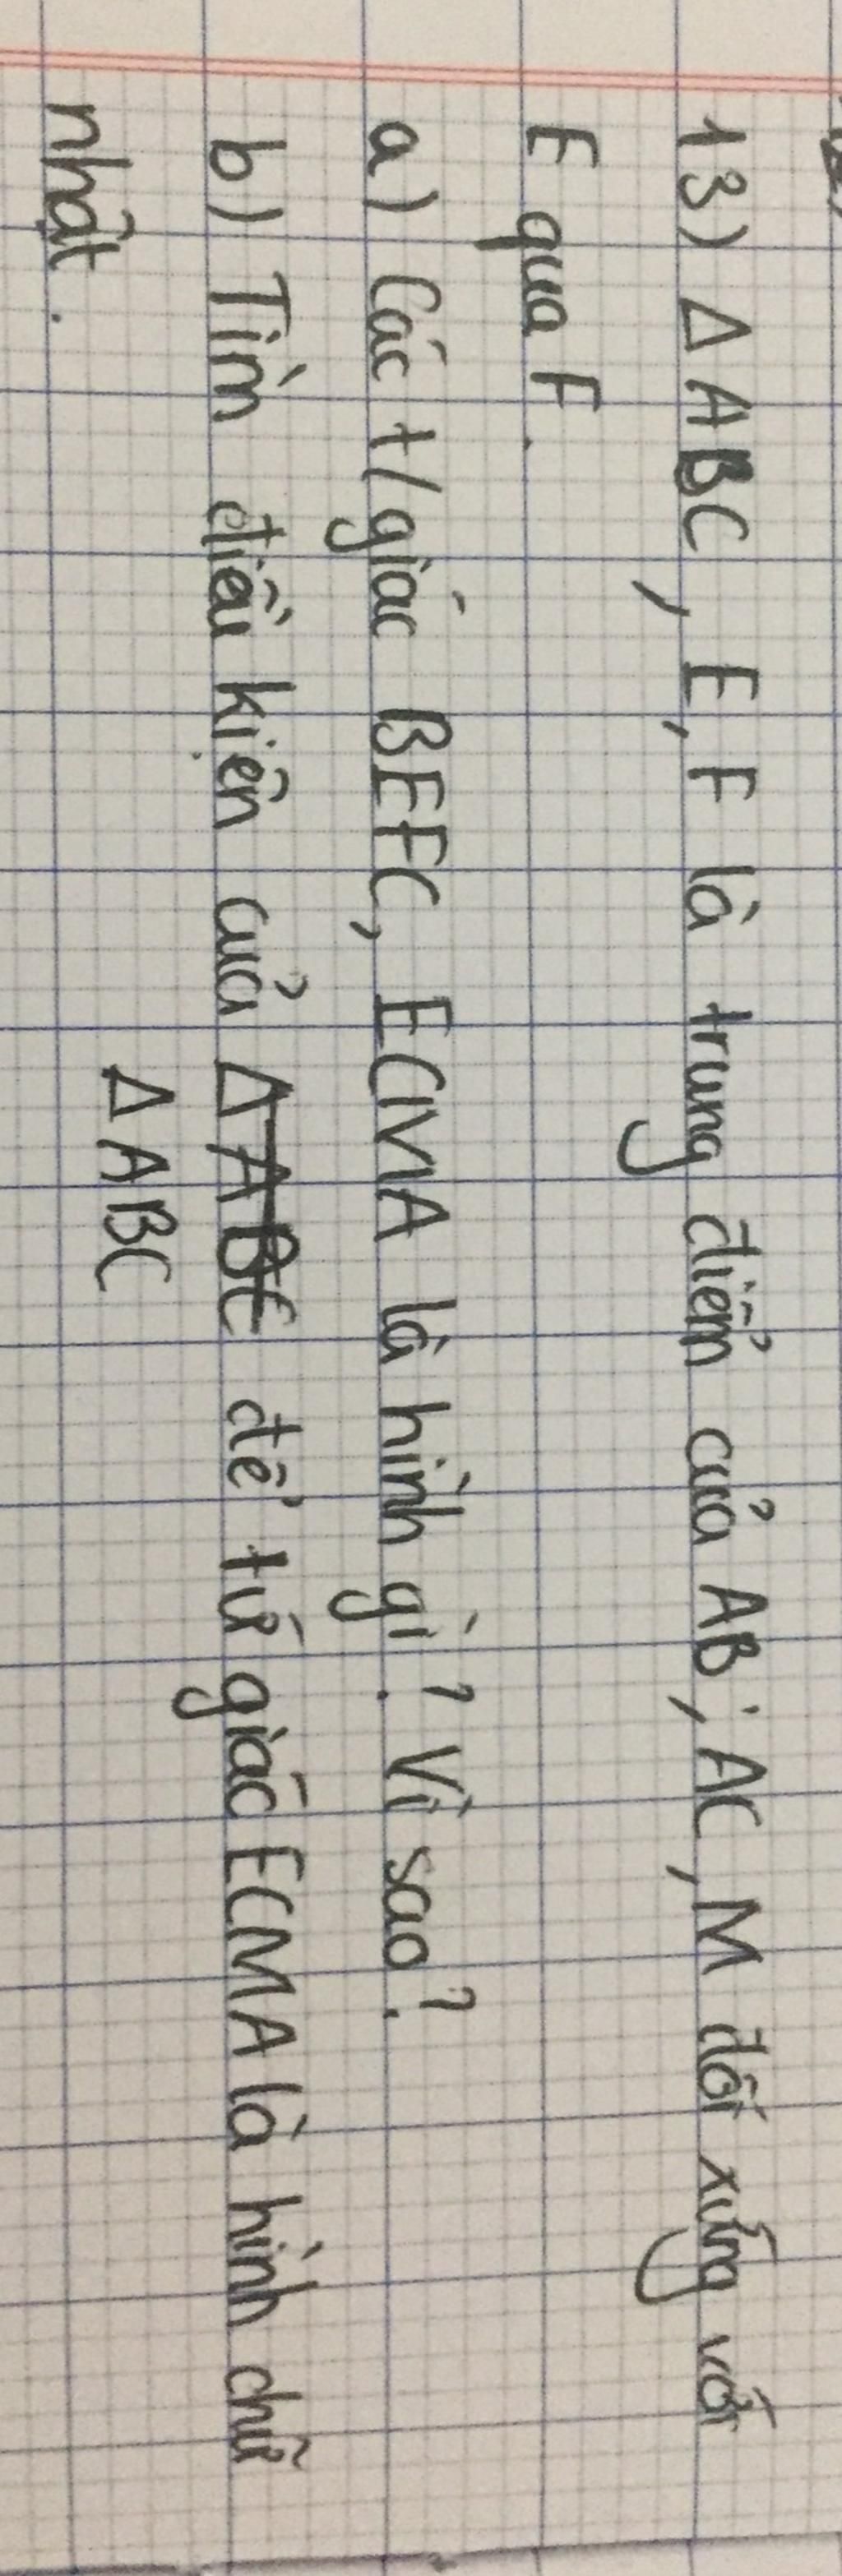 13) Δ ABC, E, F là trung điểm của AB; AC, M đối xứng với
E qua F.
a) Các t/giác BEFC, ECMA là hình gì? Vì sao?
b) Tìm điều kiện của Δ ABC để tứ giác ECMA là hình chữ
Δ ABC
nhất.